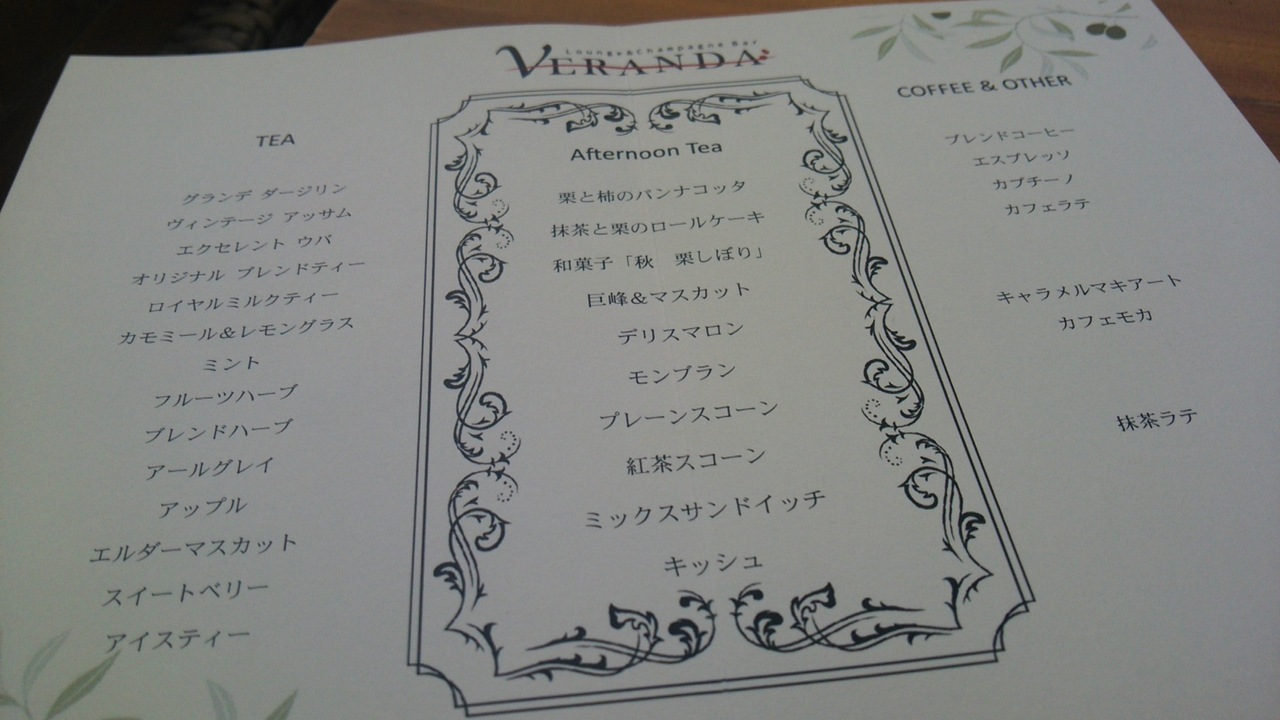 Lounge&Champagne Bar
VERANDA
TEA
グランデ ダージリン
ヴィンテージ アッサム
エクセレント ウバ
オリジナル ブレンドティー
ロイヤルミルクティー
カモミール&レモングラス
ミント
フルーツハーブ
ブレンドハーブ
アールグレイ
アップル
エルダーマスカット
スイートベリー
アイスティー
Afternoon Tea
栗と柿のパンナコッタ
抹茶と栗のロールケーキ
和菓子「秋　栗しぼり」
巨峰&マスカット
デリスマロン
モンブラン
プレーンスコーン
紅茶スコーン
ミックスサンドイッチ
キッシュ
COFFEE & OTHER
ブレンドコーヒー
エスプレッソ
カプチーノ
カフェラテ
キャラメルマキアート
カフェモカ
抹茶ラテ